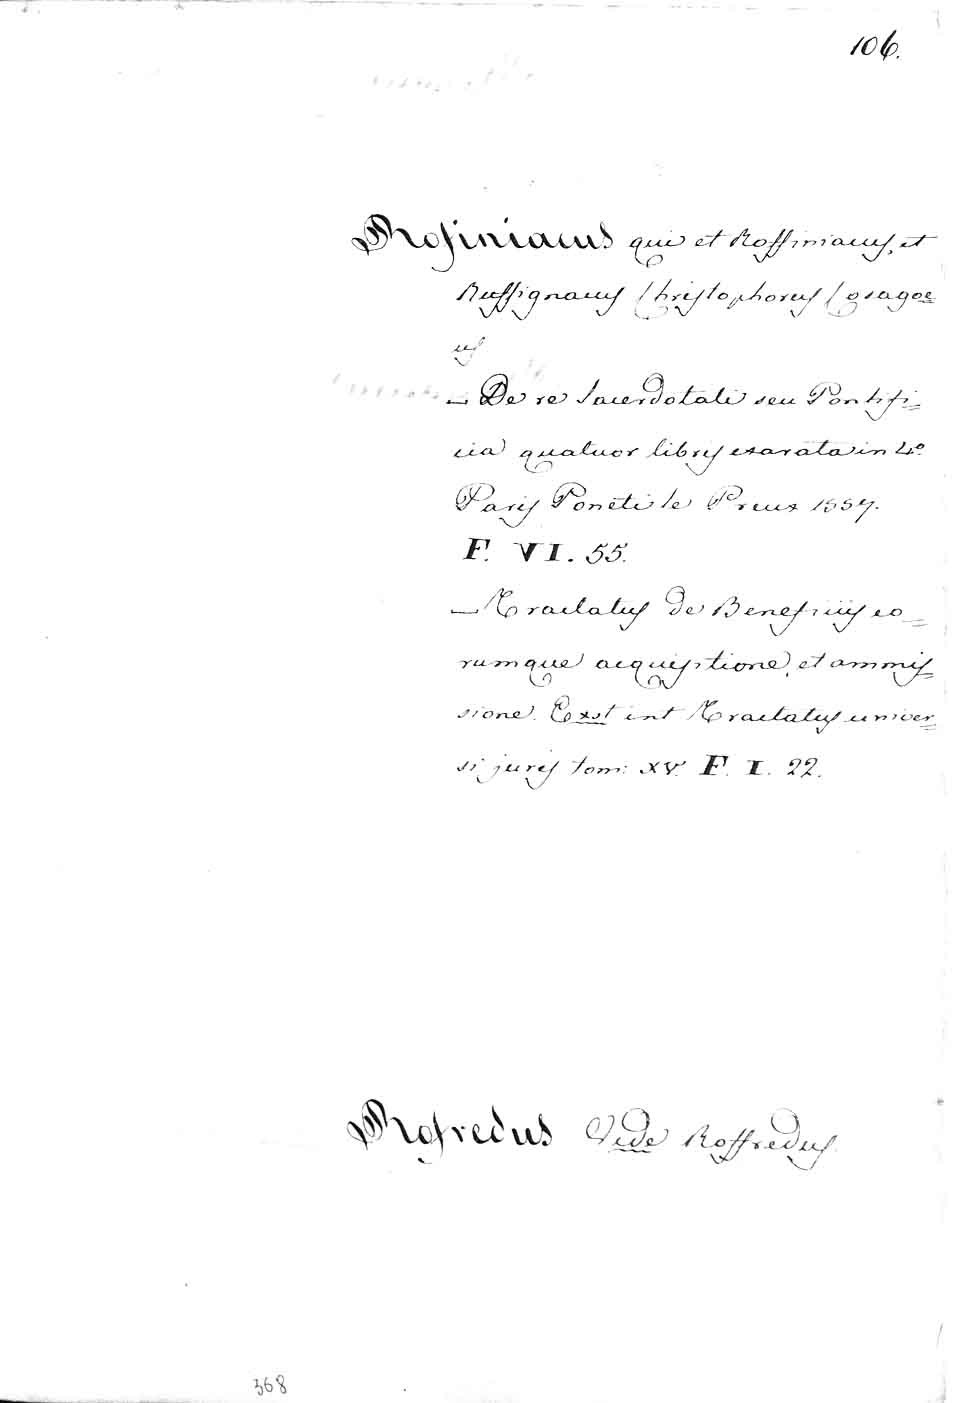 106.
Rofiniacus qui et Roffiniacus, et
Ruffignacus Christophorus Cosagoe=
us
— De re Sacerdotali seu Pontifi=
cia quatuor libris exarata in 4.º
Paris Poncti le Preux 1557.
F. VI. 55.
— Tractatus de Beneficiis eo=
rumque acquisitione, et ammis=
sione. Exst int Tractatus univer=
si juris tom: XV. F. I. 22.
Rofredus Vide Roffredus
368